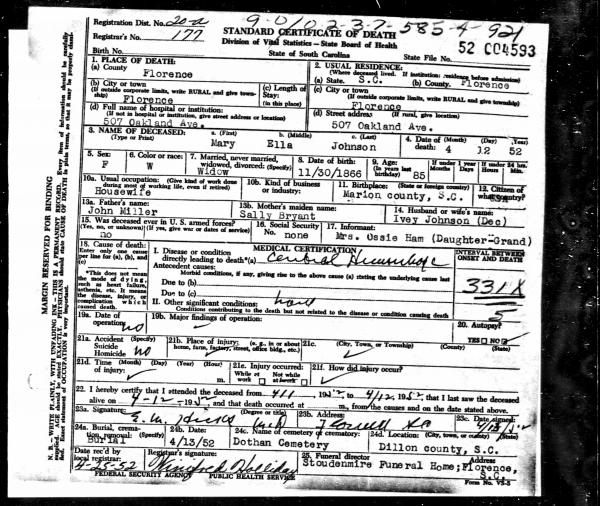 9-0102-3-7-585-4-921
Registration Dist. No. 20-a
Registrar's No. 177
STANDARD CERTIFICATE OF DEATH
Division of Vital Statistics — State Board of Health
State of South Carolina
Birth No.
State File No.
52 004593
1. PLACE OF DEATH:
(a) County Florence
2. USUAL RESIDENCE:
(Where deceased lived. If institution: residence before admission)
(a) State. S.C. (b) County. Florence
(b) City or town
(If outside corporate limits, write RURAL and give township)
Florence
(c) Length of Stay:
(in this place)
(c) City or town
(If outside corporate limits, write RURAL and give township)
Florence
(d) Full name of hospital or institution:
(If not in hospital or institution, give street address or location)
507 Oakland Ave.
(d) Street address (If rural, give location)
507 Oakland Ave.
3. NAME OF DECEASED:
(Type or Print)
a. (First) b. (Middle) c. (Last)
Mary Ella Johnson
4. Date of death: (Month) (Day) (Year)
4 12 52
5. Sex: F
6. Color or race: W
7. Married, never married, widowed, divorced: (Specify)
Widow
8. Date of Birth:
11/30/1866
9. Age: (In years last birthday) 85
If under 1 year
Months Days
If under 24 hrs.
Hours Min.
10a. Usual occupation: (Give kind of work done during most of working life, even if retired)
Housewife
10b. Kind of business or industry:
11. Birthplace: (State or foreign country)
Marion county, S.C.
12. Citizen of what country?
13a. Father's name:
John Miller
13b. Mother's maiden name:
Sally Bryant
14. Husband or wife's name:
Ivey Johnson (Dec)
15. Was deceased ever in U.S. armed forces?
(Yes, no, or unknown) (If yes, give war or dates of service)
no
16. Social Security No. none
17. Informant:
Mrs. Ossie Ham (Daughter-Grand)
18. Cause of death:
Enter only one cause per line for (a), (b), and (c)
*This does not mean the mode of dying, such as heart failure, asthenia, etc. It means the disease, injury, or complication which caused death.
MEDICAL CERTIFICATION
I. Disease or condition directly leading to death*(a) Cerebral Hemorrhage
Antecedent causes:
Morbid conditions, if any, giving rise to the above cause (a) stating the underlying cause last
Due to (b)
Due to (c)
II. Other significant conditions:
Conditions contributing to the death but not related to the disease or condition causing death
INTERVAL BETWEEN ONSET AND DEATH
331X
5
19a. Date of operation: no
19b. Major findings of operation:
20. Autopsy?
YES NO
21a. Accident (Specify)
Suicide
Homicide no
21b. Place of injury: (e.g., in or about home, farm, factory, street, office bldg., etc.)
21c. (City, Town, or Township) (County) (State)
21d. Time (Month) (Day) (Year) (Hour)
of injury: m.
21e. Injury occurred:
While at work Not while at work
21f. How did injury occur?
22. I hereby certify that I attended the deceased from 4/1, 1952 to 4/12, 1952 that I last saw the deceased
alive on 4-12-1952, and that death occurred at m., from the causes and on the date stated above.
23a. Signature: (Degree or title)
E. M. Hicks MD
23b. Address:
Florence SC
23c. Date signed:
24a. Burial, cremation, removal: (Specify)
Burial
24b. Date:
4/13/52
24c. Name of cemetery or crematory:
Dothan Cemetery
24d. Location: (City, town, or county) (State)
Dillon county, S.C.
Date rec'd by local registrar:
4-25-52
Registrar's signature:
Winifred Holliday
25. Funeral director Address
Stoudenmire Funeral Home; Florence, S.C.
FEDERAL SECURITY AGENCY PUBLIC HEALTH SERVICE
Form No. VS-3
MARGIN RESERVED FOR BINDING